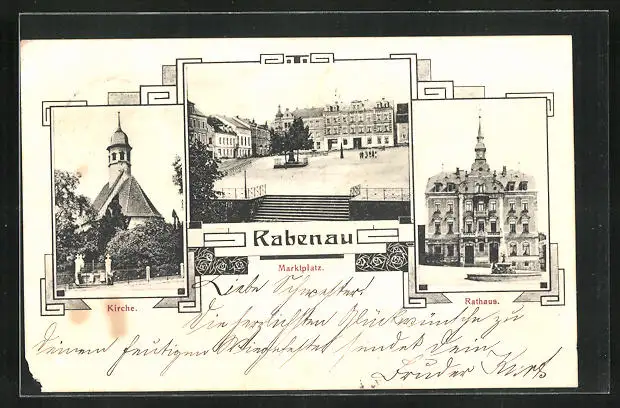 Rabenau
Marktplatz.
Kirche.
Rathaus.
Liebe Schwester!
Die herzlichsten Glückwünsche zu
Deinem heutigen Wiegenfeste sendet Dein
Bruder Kurt